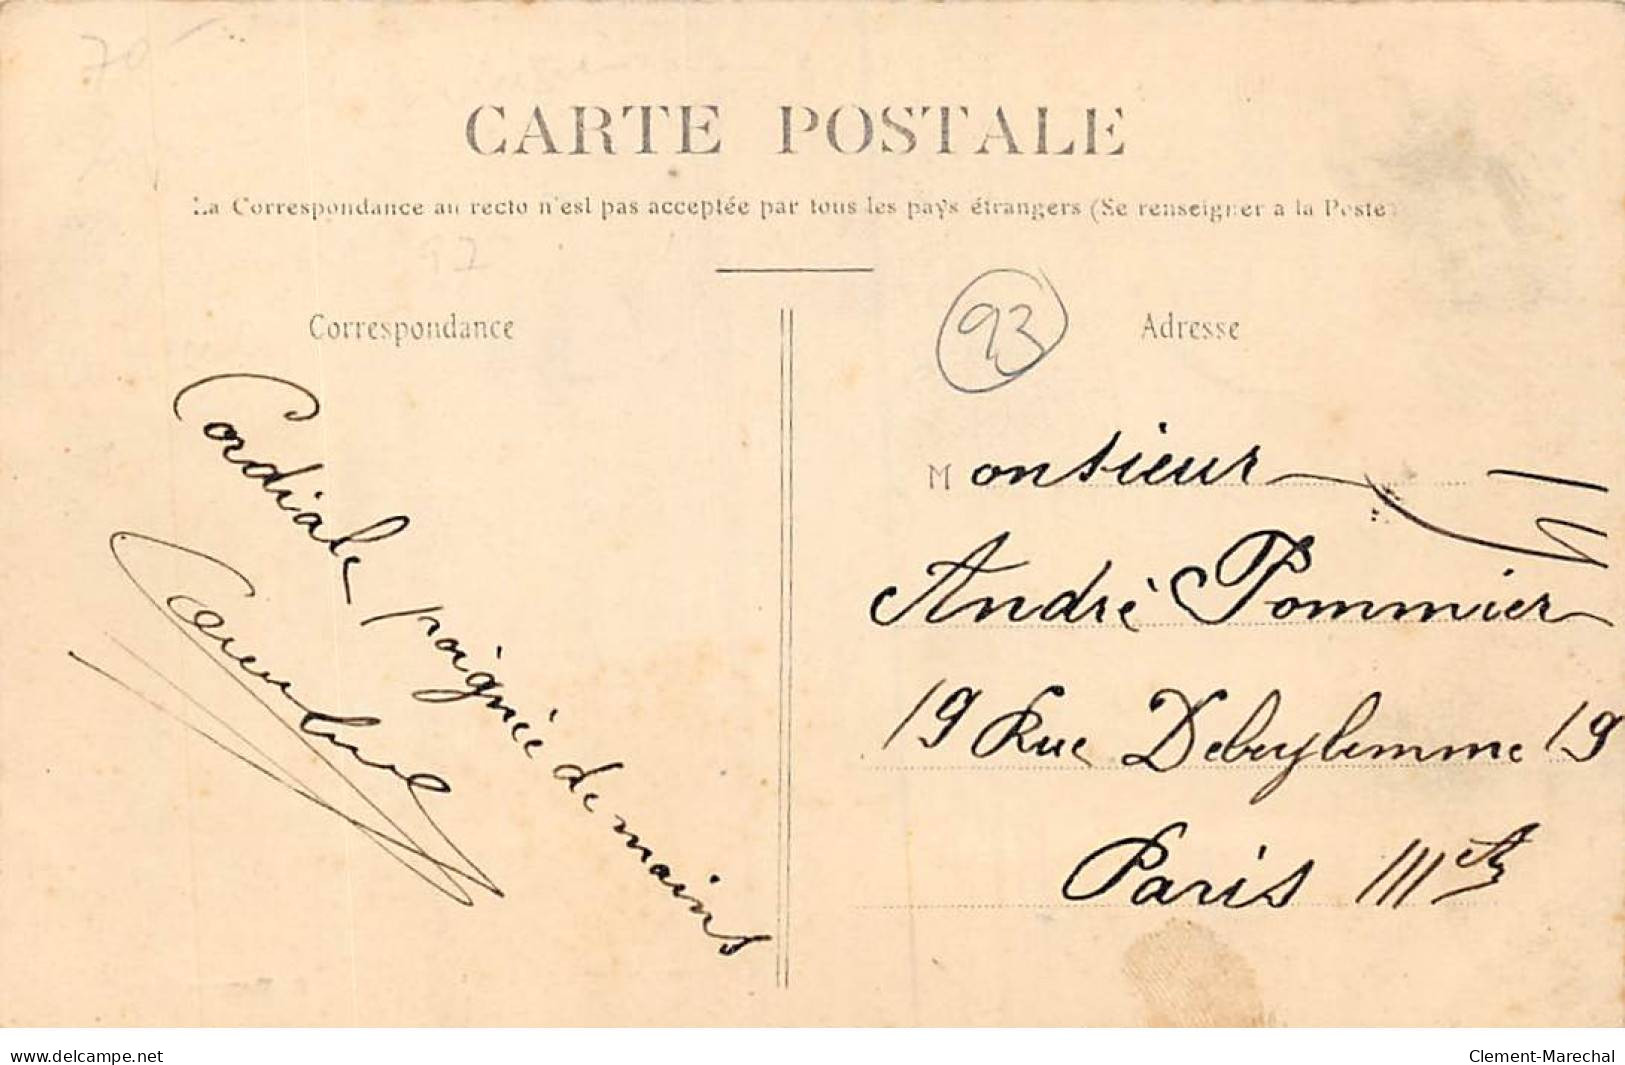 70
CARTE POSTALE
La Correspondance au recto n'est pas acceptée par tous les pays étrangers (Se renseigner a la Poste)
97
Correspondance
93
Adresse
Cordiale poignée de mains
Monsieur
André Pommier
19 Rue Debeylemme 19
Paris IIIe
www.delcampe.net
Clement-Marechal